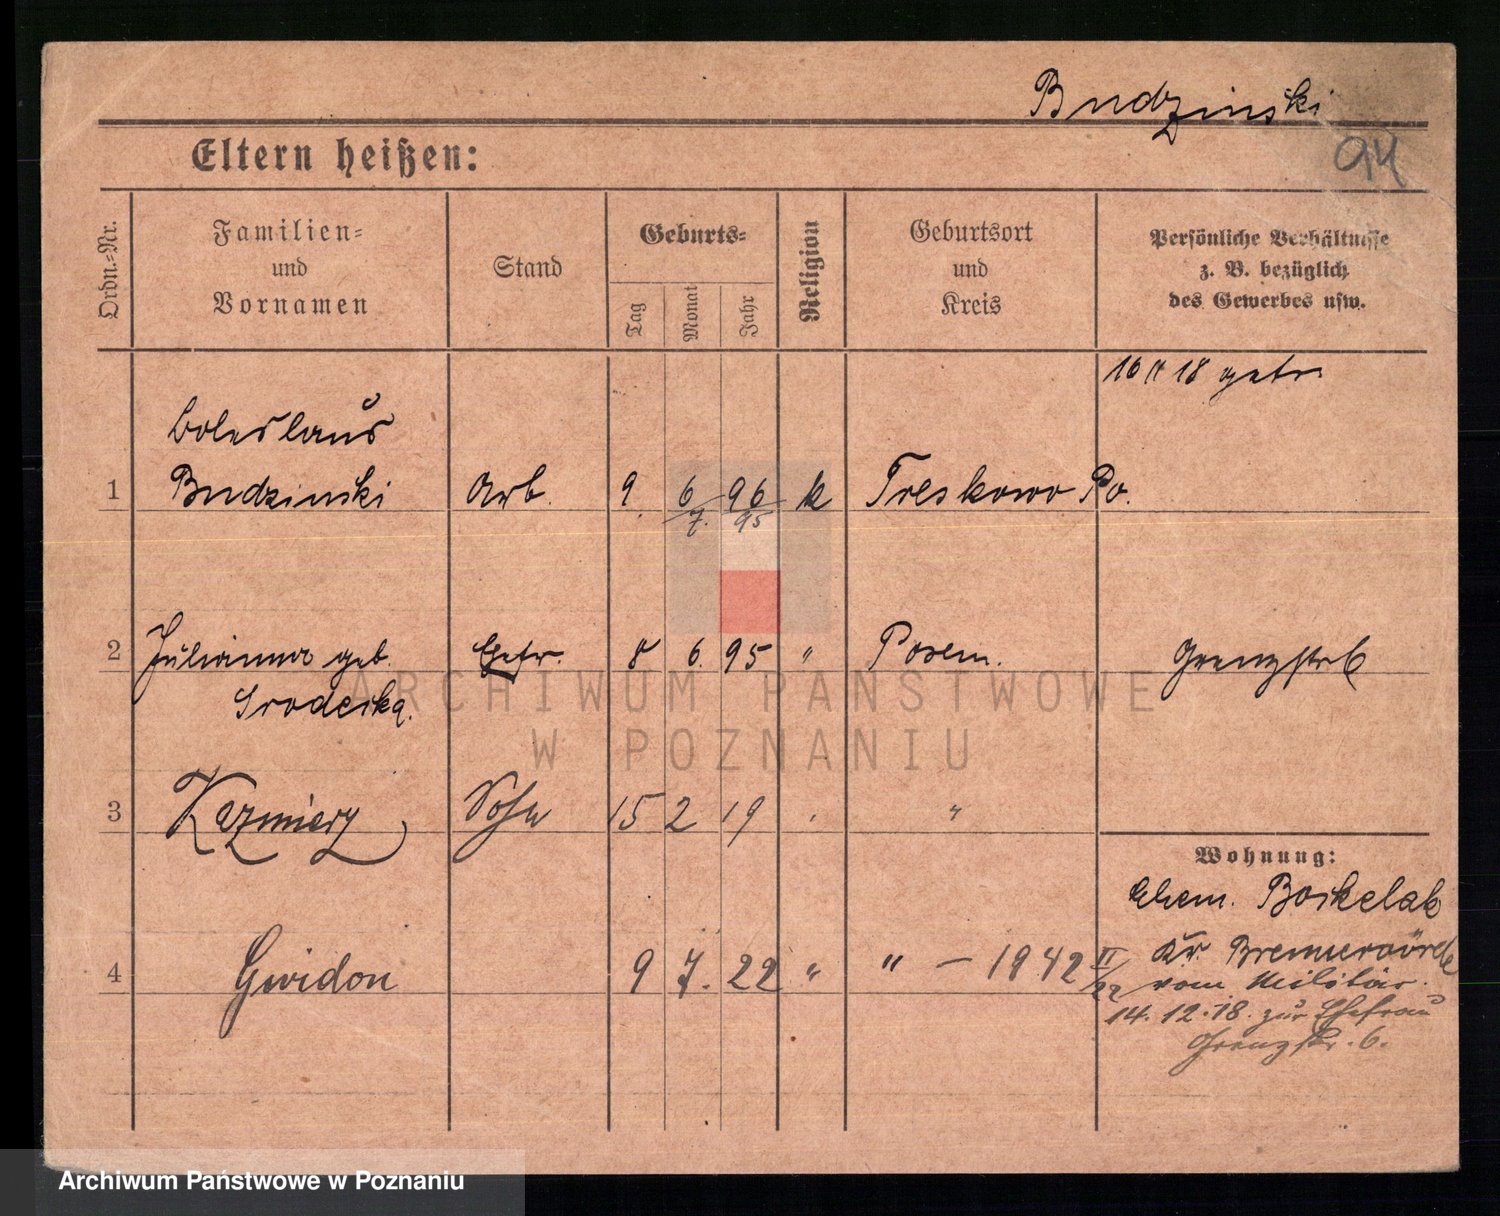 Budzinski
94
Eltern heißen:
Ordn.-Nr.
Familien- und Vornamen
Stand
Geburts-
Tag
Monat
Jahr
Religion
Geburtsort und Kreis
Persönliche Verhältnisse z. B. bezüglich des Gewerbes usw.
16 11 18 getr.
Boleslaus
1 Budzinski Arb. 9. 6 96 k Treskowo Po.
7. 95
2 Julianna geb. Ehefr. 8 6. 95 " Posen. Grenzstr 6
Srodecka.
3 Kazmierz Sohn 15 2 19 "
Wohnung:
4 Gwidon 9 7. 22 " " — 1942 II/22
Kr. Bremervörde
vom Militär.
14.12.18. zur Ehefrau
Grenzstr. 6.
ARCHIWUM PAŃSTWOWE
W POZNANIU
Archiwum Państwowe w Poznaniu